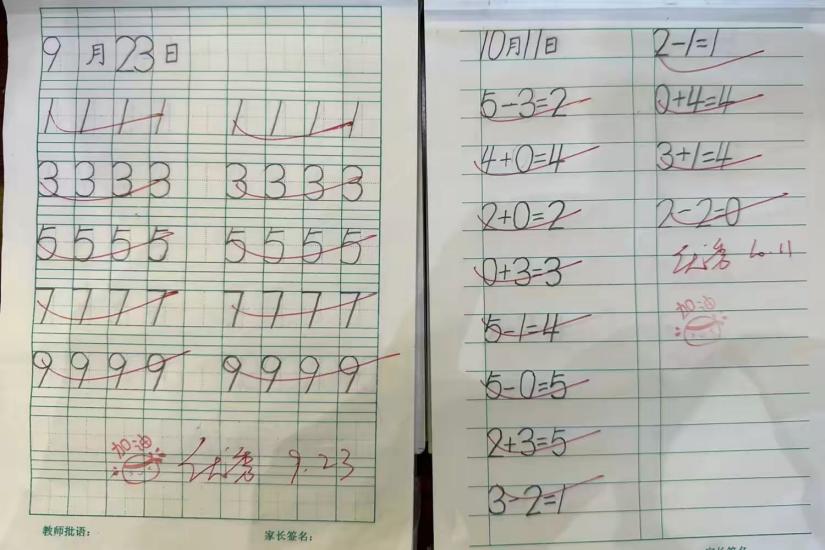 9月23日
1 1 1 1 1 1 1 1
3 3 3 3 3 3 3 3
5 5 5 5 5 5 5 5
7 7 7 7 7 7 7 7
9 9 9 9 9 9 9 9
加油
优秀 9.23
教师批语： 家长签名：
10月11日
5-3=2
4+0=4
2+0=2
0+3=3
5-1=4
5-0=5
2+3=5
3-2=1
2-1=1
0+4=4
3+1=4
2-2=0
优秀 10.11
加油